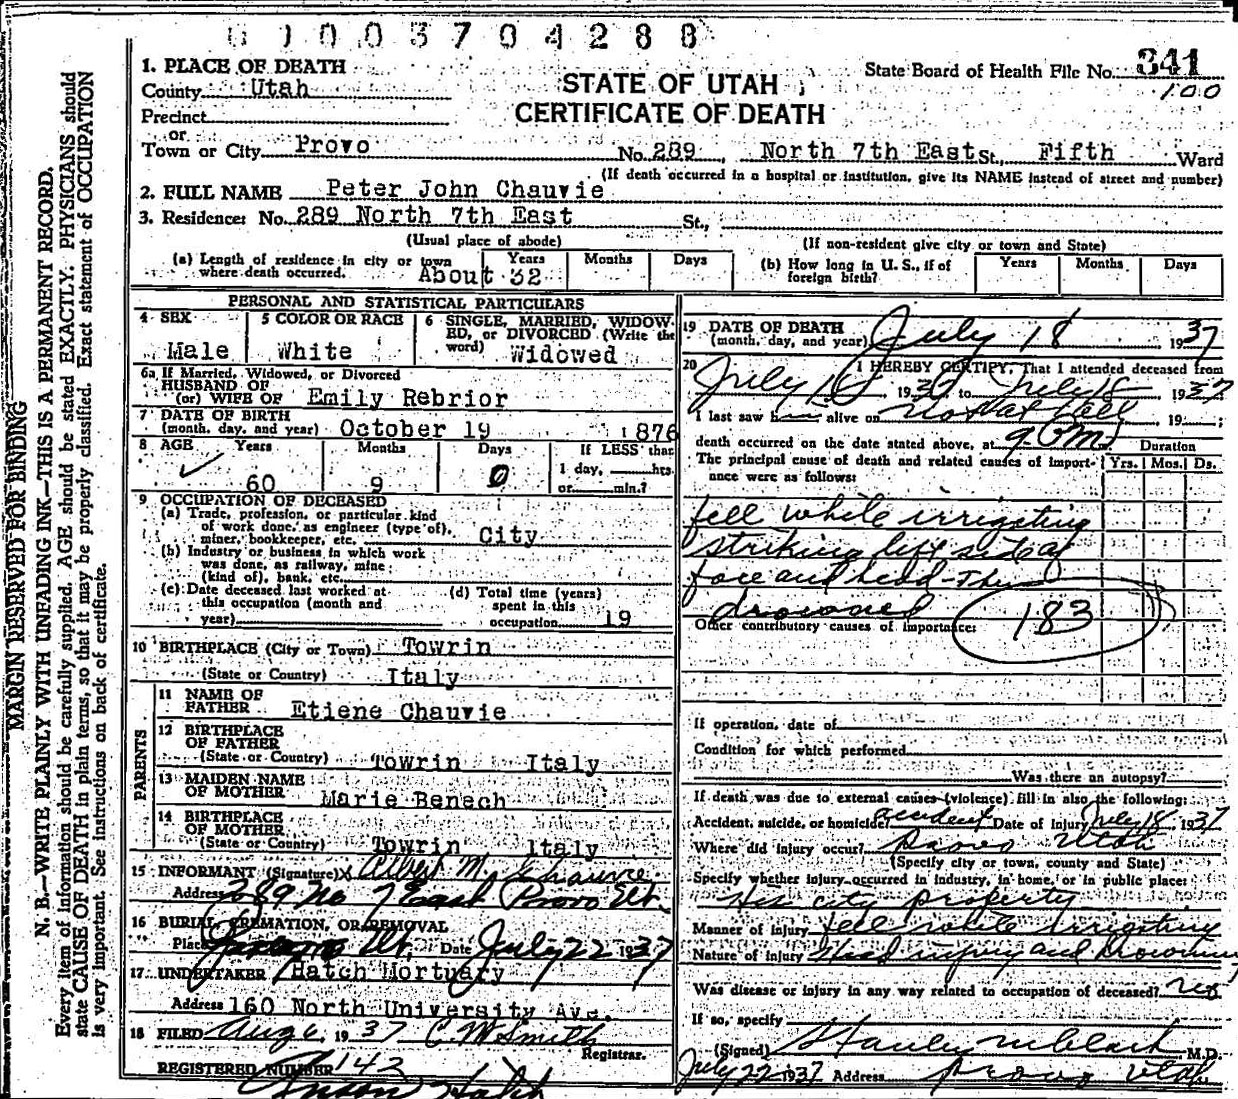 0 1 0 0 3 7 0 4 2 8 8
MARGIN RESERVED FOR BINDING
N. B.—WRITE PLAINLY WITH UNFADING INK—THIS IS A PERMANENT RECORD.
Every item of information should be carefully supplied. AGE should be stated EXACTLY. PHYSICIANS should
state CAUSE OF DEATH in plain terms, so that it may be properly classified. Exact statement of OCCUPATION
is very important. See instructions on back of certificate.
STATE OF UTAH
CERTIFICATE OF DEATH
State Board of Health File No. 341
100
1. PLACE OF DEATH
County Utah
Precinct
or
Town or City Provo No. 289, North 7th East St., Fifth Ward
(If death occurred in a hospital or institution, give its NAME instead of street and number)
2. FULL NAME Peter John Chauvie
3. Residence: No. 289 North 7th East St.,
(Usual place of abode) (If non-resident give city or town and State)
(a) Length of residence in city or town where death occurred. About 32 Years Months Days
(b) How long in U. S., if of foreign birth? Years Months Days
PERSONAL AND STATISTICAL PARTICULARS
4 SEX Male
5 COLOR OR RACE White
6 SINGLE, MARRIED, WIDOWED, or DIVORCED (Write the word) Widowed
6a If Married, Widowed, or Divorced
HUSBAND OF
(or) WIFE OF Emily Rebrior
7 DATE OF BIRTH
(month, day, and year) October 19 1876
8 AGE Years 60 Months 9 Days 0 If LESS than 1 day, hrs. or min.?
9 OCCUPATION OF DECEASED
(a) Trade, profession, or particular kind of work done, as engineer (type of), miner, bookkeeper, etc. City
(b) Industry or business in which work was done, as railway, mine (kind of), bank, etc.
(c) Date deceased last worked at this occupation (month and year)
(d) Total time (years) spent in this occupation 19
10 BIRTHPLACE (City or Town) Towrin
(State or Country) Italy
PARENTS
11 NAME OF FATHER Etiene Chauvie
12 BIRTHPLACE OF FATHER
(State or Country) Towrin Italy
13 MAIDEN NAME OF MOTHER Marie Benech
14 BIRTHPLACE OF MOTHER
(State or Country) Towrin Italy
15 INFORMANT (Signature) x Albert M. Chauvie
Address 289 No 7 East Provo Ut.
16 BURIAL, CREMATION, OR REMOVAL
Place Ut. Date July 22 1937
17 UNDERTAKER Hatch Mortuary
Address 160 North University Ave.
18 FILED Aug 6, 1937 C. W. Smith
Registrar.
REGISTERED NUMBER 142
Anson Hatch
19 DATE OF DEATH
(month, day, and year) July 18 1937
20 I HEREBY CERTIFY, That I attended deceased from
July 18, 1937 to July 18 1937
I last saw him alive on Not at all 19 ;
death occurred on the date stated above, at 9 P.m.
Duration
The principal cause of death and related causes of importance were as follows:
Yrs. Mos. Ds.
fell while irrigating
striking left side of
face and head - Then
drowned
183
Other contributory causes of importance:
If operation, date of
Condition for which performed
Was there an autopsy?
If death was due to external causes (violence) fill in also the following:
Accident, suicide, or homicide? accident Date of Injury July 18 1937
Where did injury occur? Provo Utah
(Specify city or town, county and State)
Specify whether injury occurred in industry, in home, or in public place:
His city property
Manner of injury fell while irrigating
Nature of injury Head injury and Drowning
Was disease or injury in any way related to occupation of deceased?
If so, specify
(Signed) Stanley M Clark M.D.
July 22 1937 Address Provo Utah